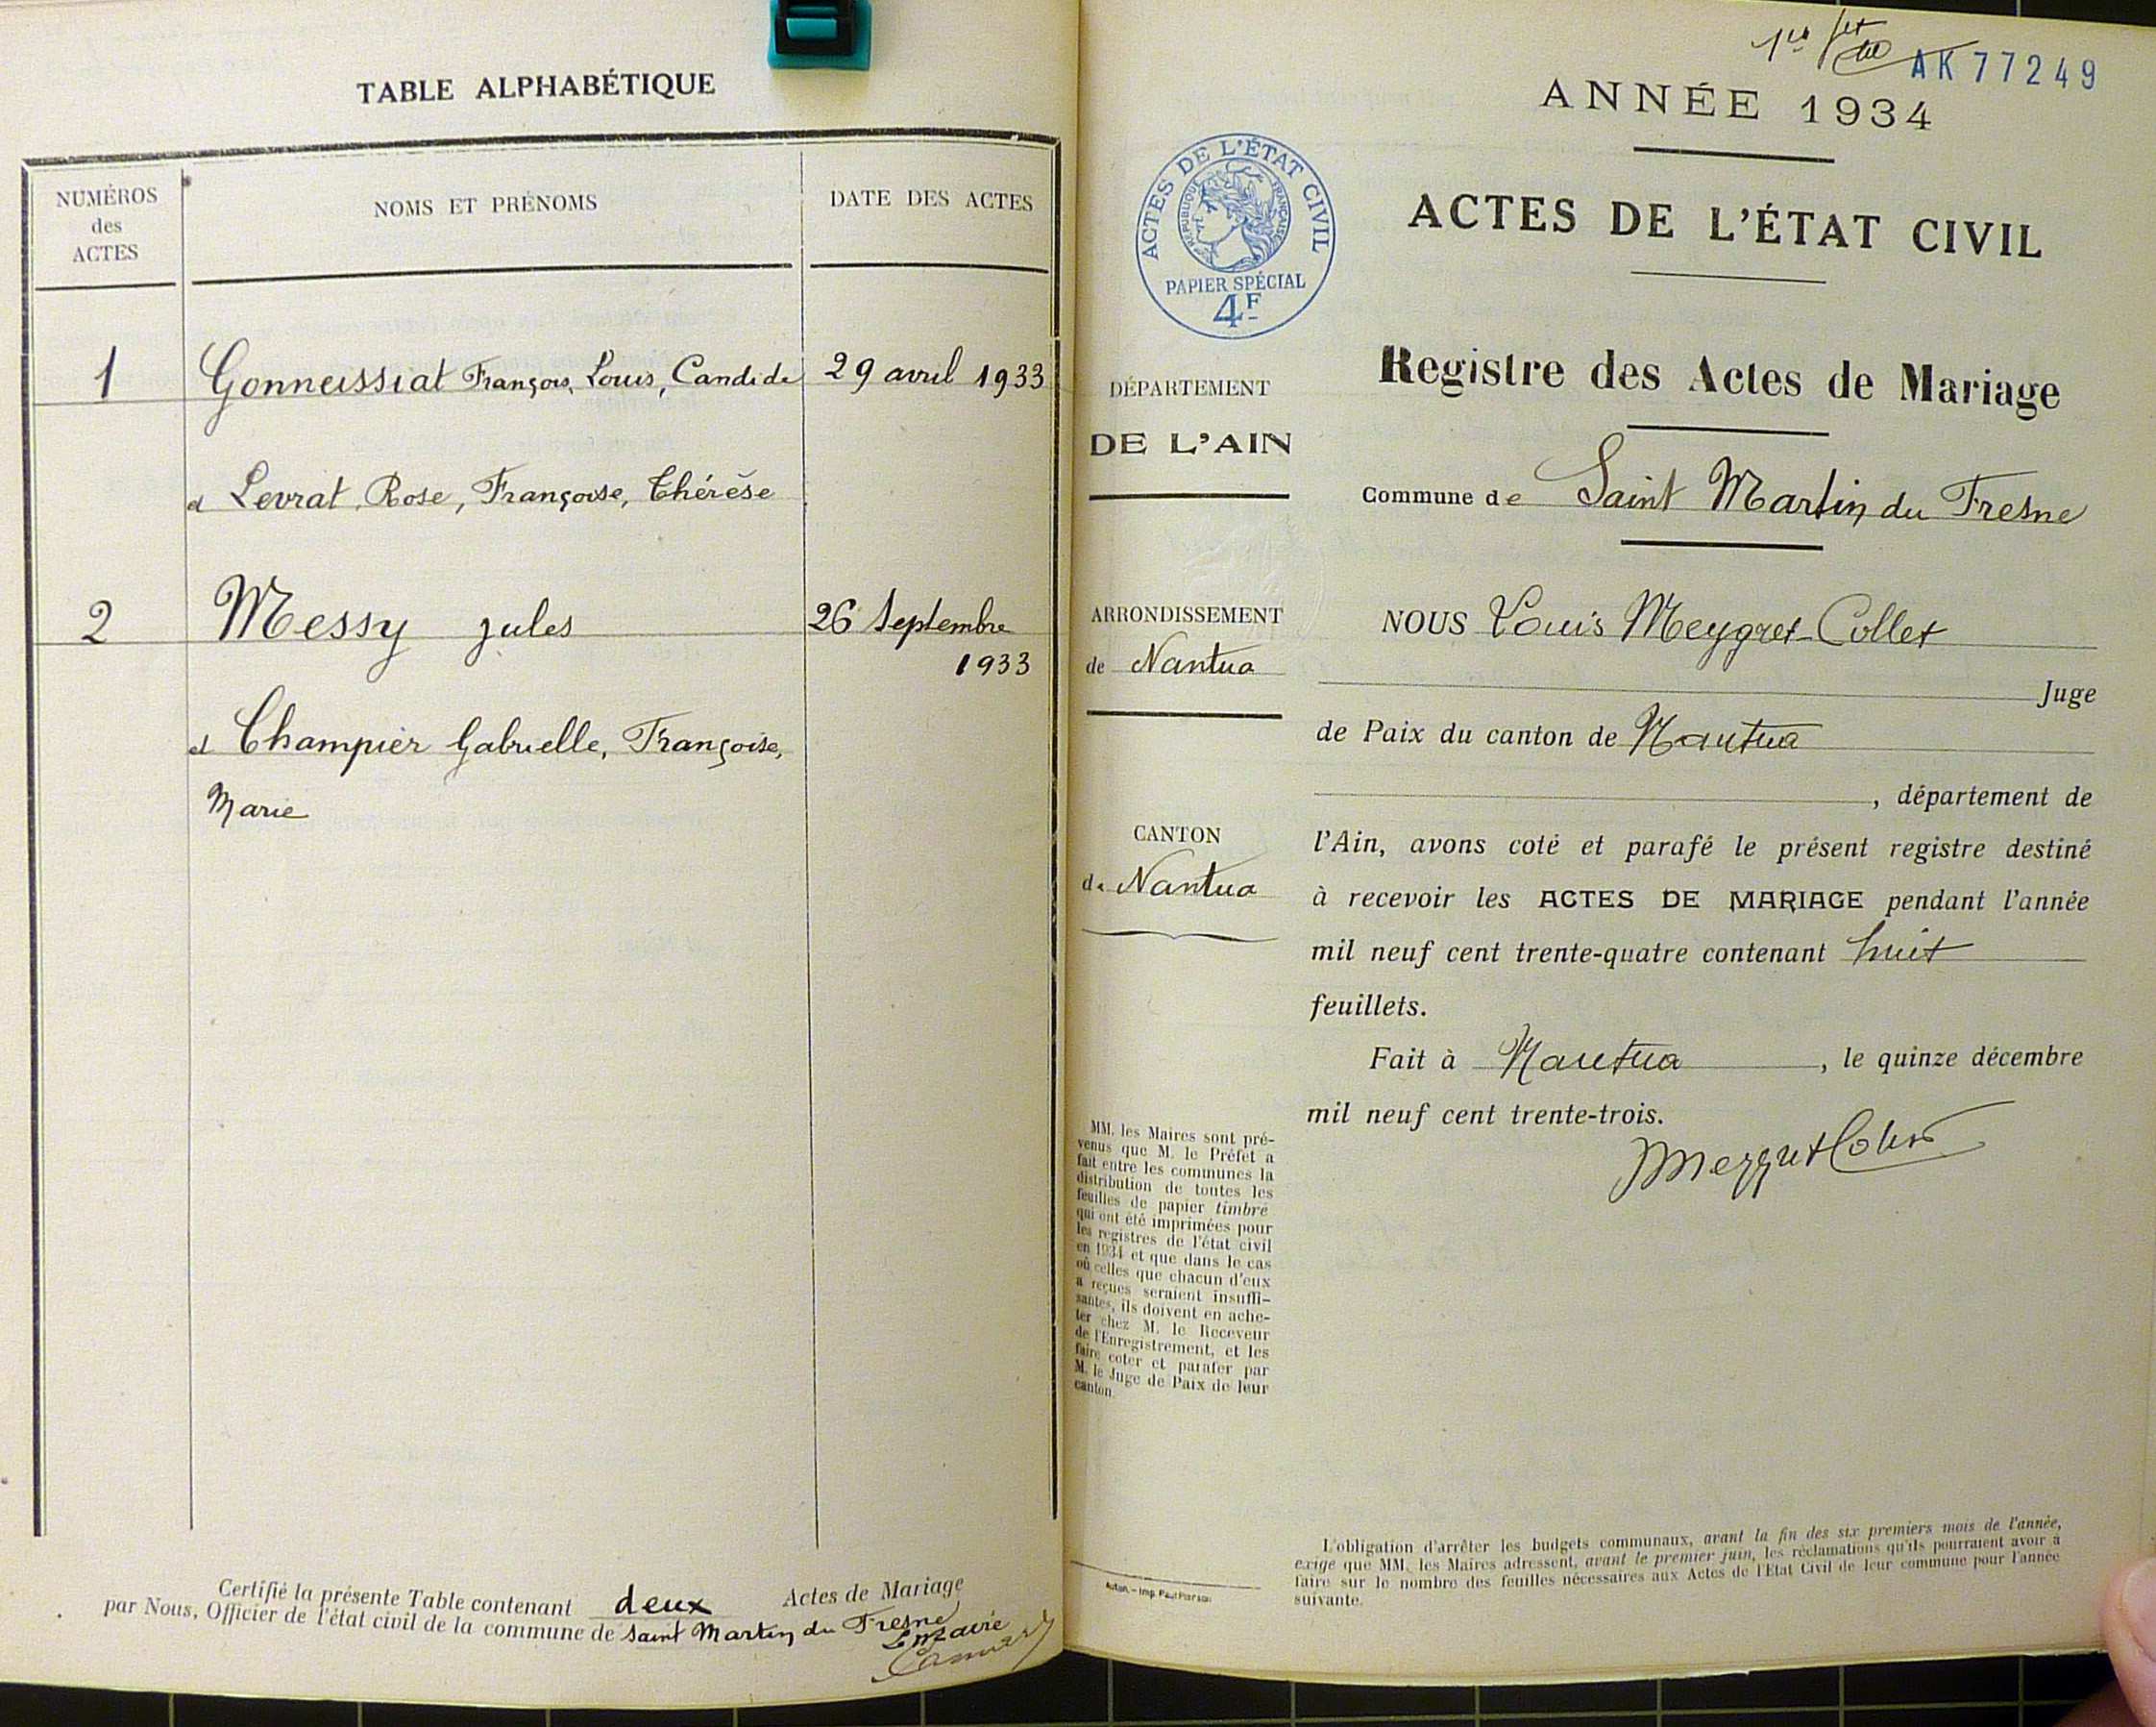 TABLE ALPHABÉTIQUE
NUMÉROS
des
ACTES
NOMS ET PRÉNOMS
DATE DES ACTES
1
Gonneissiat François, Louis, Candide
29 avril 1933
et Levrat, Rose, Françoise, Thérèse
2
Messy Jules
26 Septembre
1933
et Champier Gabrielle, Françoise,
Marie
Certifié la présente Table contenant deux Actes de Mariage
par Nous, Officier de l'état civil de la commune de Saint Martin du Fresne
Le Maire
AK 77249
ANNÉE 1934
ACTES DE L'ÉTAT CIVIL
RÉPUBLIQUE FRANÇAISE
PAPIER SPÉCIAL
4F
ACTES DE L'ÉTAT CIVIL
Registre des Actes de Mariage
DÉPARTEMENT
DE L'AIN
Commune de Saint Martin du Fresne
ARRONDISSEMENT
de Nantua
CANTON
de Nantua
NOUS Louis Meygret-Collet
Juge
de Paix du canton de Nantua
, département de
l'Ain, avons coté et parafé le présent registre destiné
à recevoir les ACTES DE MARIAGE pendant l'année
mil neuf cent trente-quatre contenant huit
feuillets.
Fait à Nantua, le quinze décembre
mil neuf cent trente-trois.
Meygret Collet
MM. les Maires sont pré-
venus que M. le Préfet a
fait entre les communes la
distribution de toutes les
feuilles de papier timbré
qui ont été imprimées pour
les registres de l'état civil
en 1934 et que dans le cas
où celles que chacun d'eux
a reçues seraient insuffi-
santes, ils doivent en ache-
ter chez M. le Receveur
de l'Enregistrement, et les
faire coter et parafer par
M. le Juge de Paix de leur
canton.
L'obligation d'arrêter les budgets communaux, avant la fin des six premiers mois de l'année,
exige que MM. les Maires adressent, avant le premier juin, les réclamations qu'ils pourraient avoir à
faire sur le nombre des feuilles nécessaires aux Actes de l'Etat Civil de leur commune pour l'année
suivante.